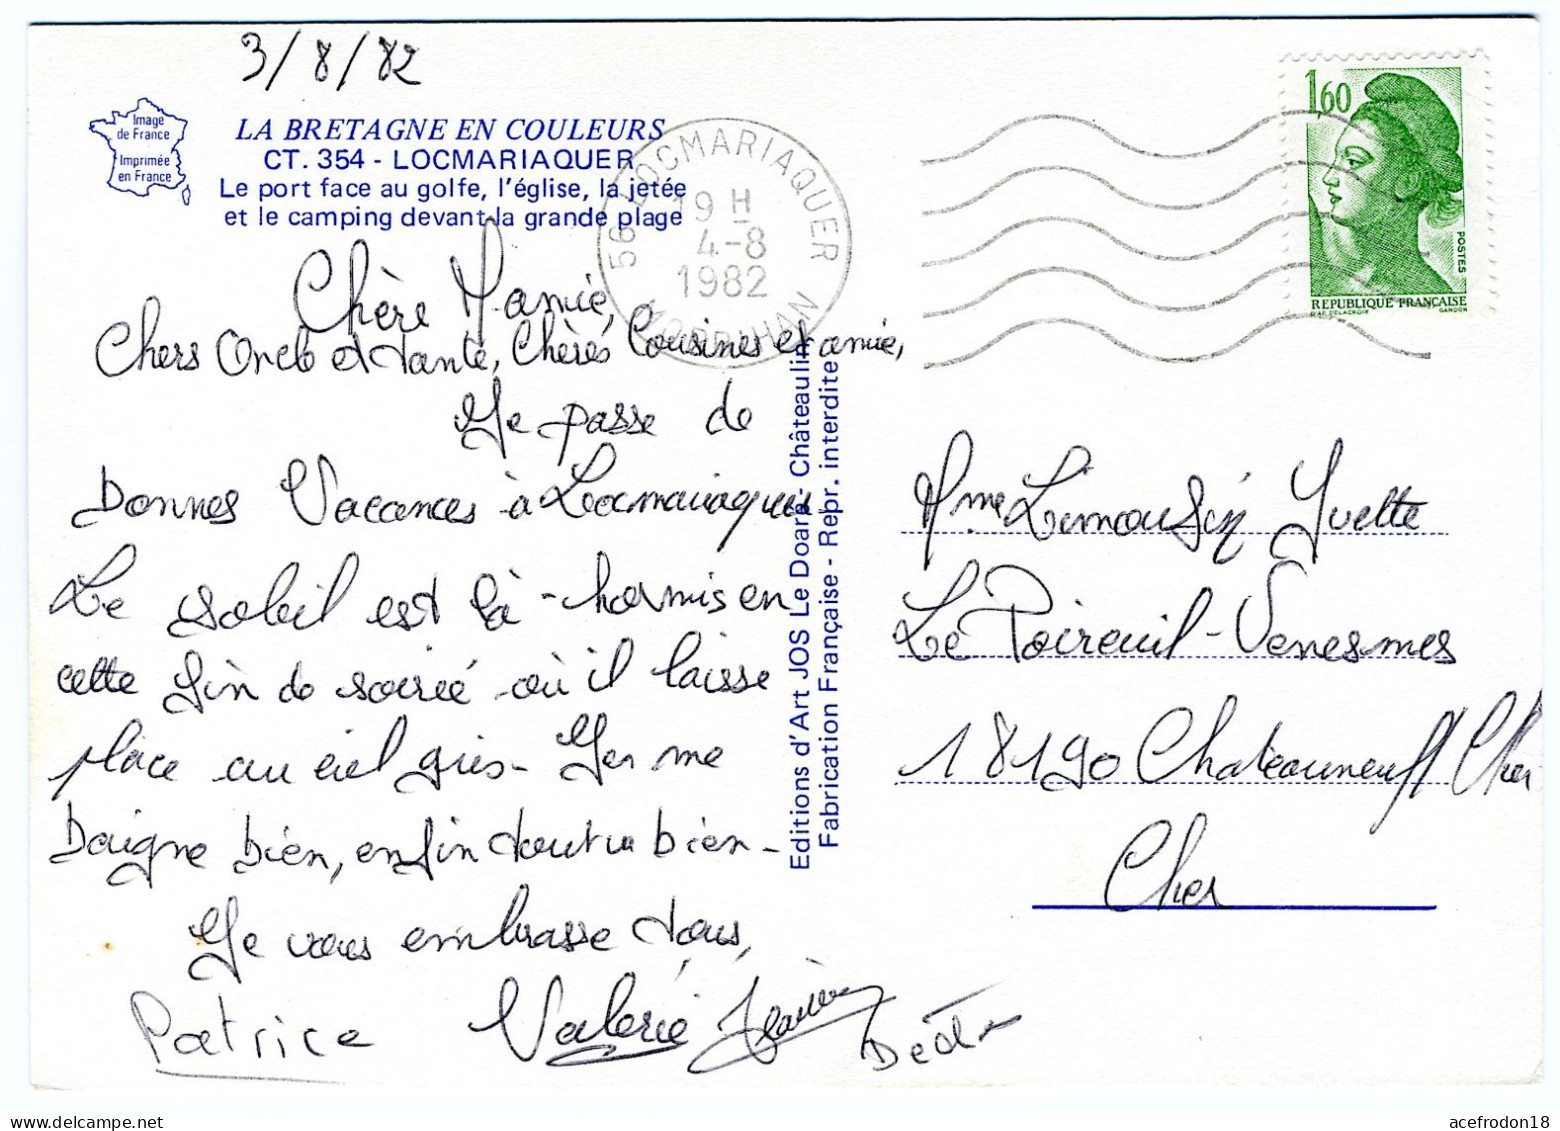 3/8/82
Image
de France
Imprimée
en France
LA BRETAGNE EN COULEURS
CT. 354 - LOCMARIAQUER
Le port face au golfe, l'église, la jetée
et le camping devant la grande plage
56 LOCMARIAQUER
19 H
4-8
1982
MORBIHAN
1,60
POSTES
REPUBLIQUE FRANÇAISE
D'AP. DELACROIX GANDON
Chère Mamie,
Chers Oncle et tante, Chères Cousines et amie,
Je passe de
Bonnes Vacances à Locmariaquer
Le soleil est là - hormis en
cette fin de soirée où il laisse
place au ciel gris - Yer me
Baigne bien, enfin tout va bien -
Je vous embrasse tous,
Patrice Valérie
Editions d'Art JOS Le Doaré Châteaulin
Fabrication Française - Repr. interdite
Mme Limousin Yvette
Le Poireuil - Venesmes
18190 Chateauneuf / Cher
Cher
acefrodon18